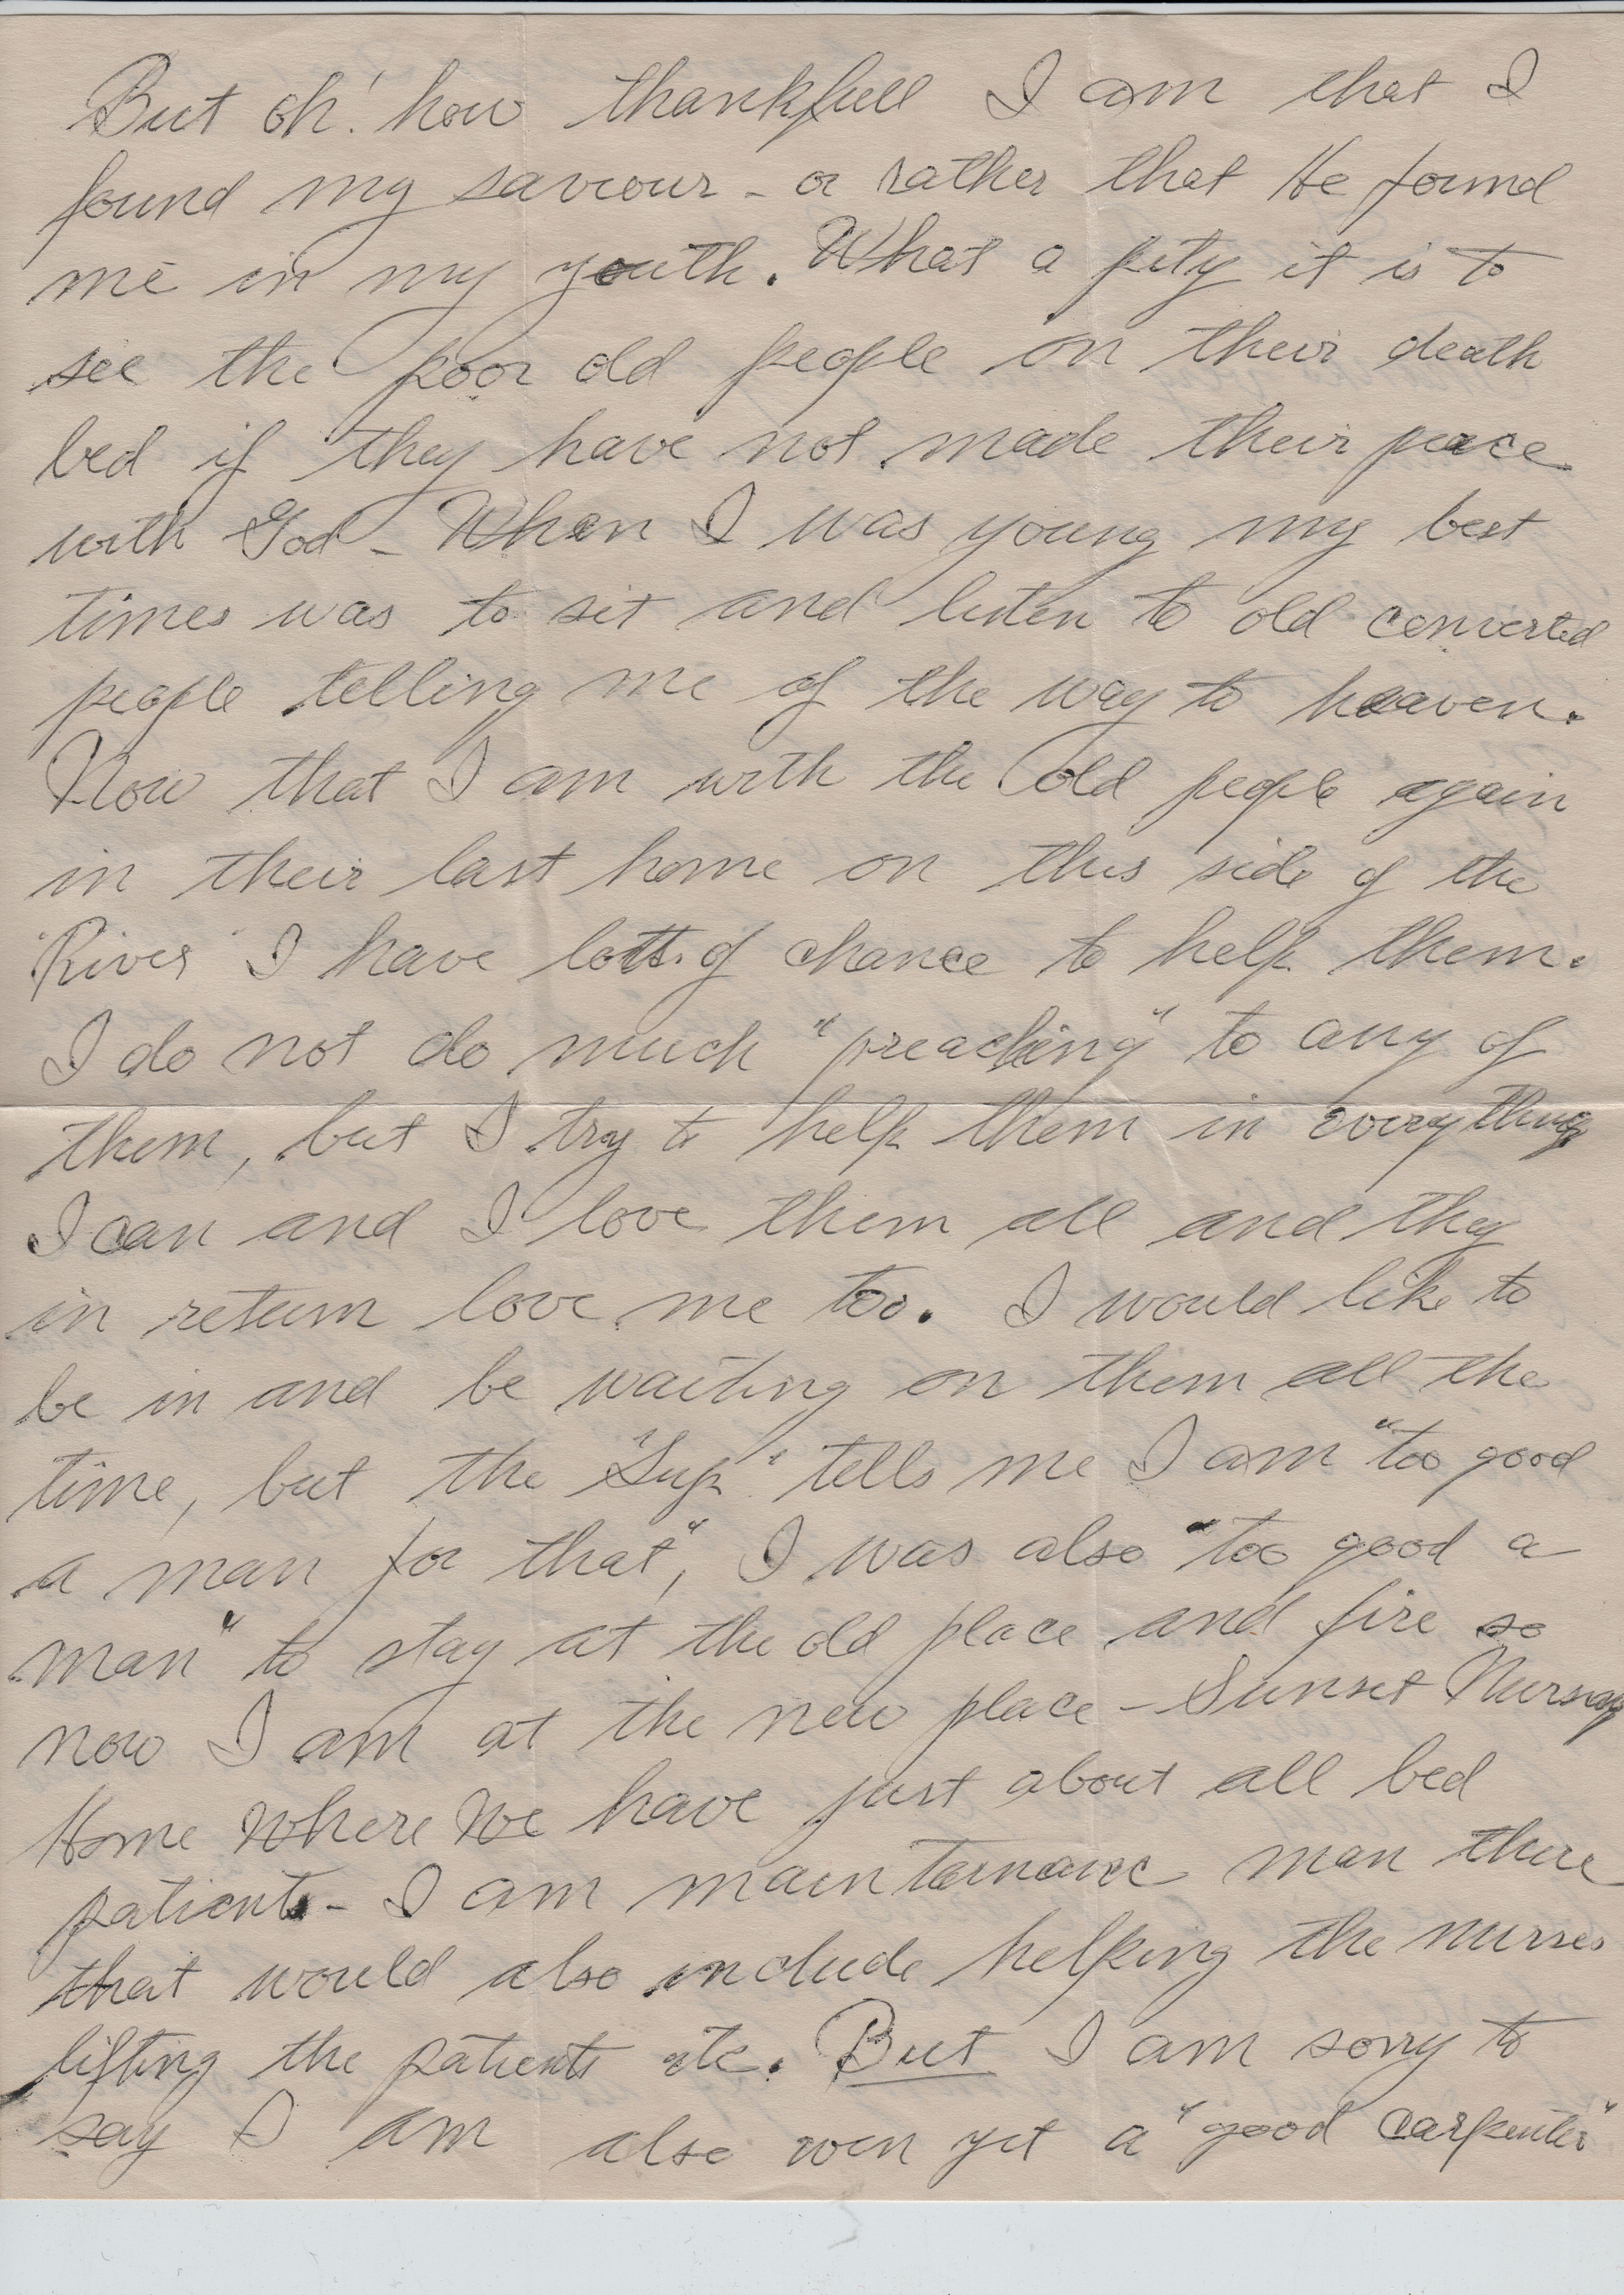 But oh! how thankfull I am that I
found my saviour - or rather that He found
me in my youth. What a pity it is to
see the poor old people on their death
bed if they have not made their peace
with God - When I was young my best
times was to sit and listen to old converted
people telling me of the way to heaven.
Now that I am with the old people again
in their last home on this side of the
"River" I have lotts of chance to help them.
I do not do much "preaching" to any of
them, but I try to help them in everything
I can and I love them all and they
in return love me too. I would like to
be in and be waiting on them all the
time, but the "Sup" tells me I am "too good
a man for that", I was also "too good a
man" to stay at the old place and fire so
now I am at the new place - Sunset Nursing
Home Where We have just about all bed
patients - I am mainternance man there
that would also include helping the nurses
lifting the patients etc. But I am sorry to
say I am also even yet a "good carpenter"